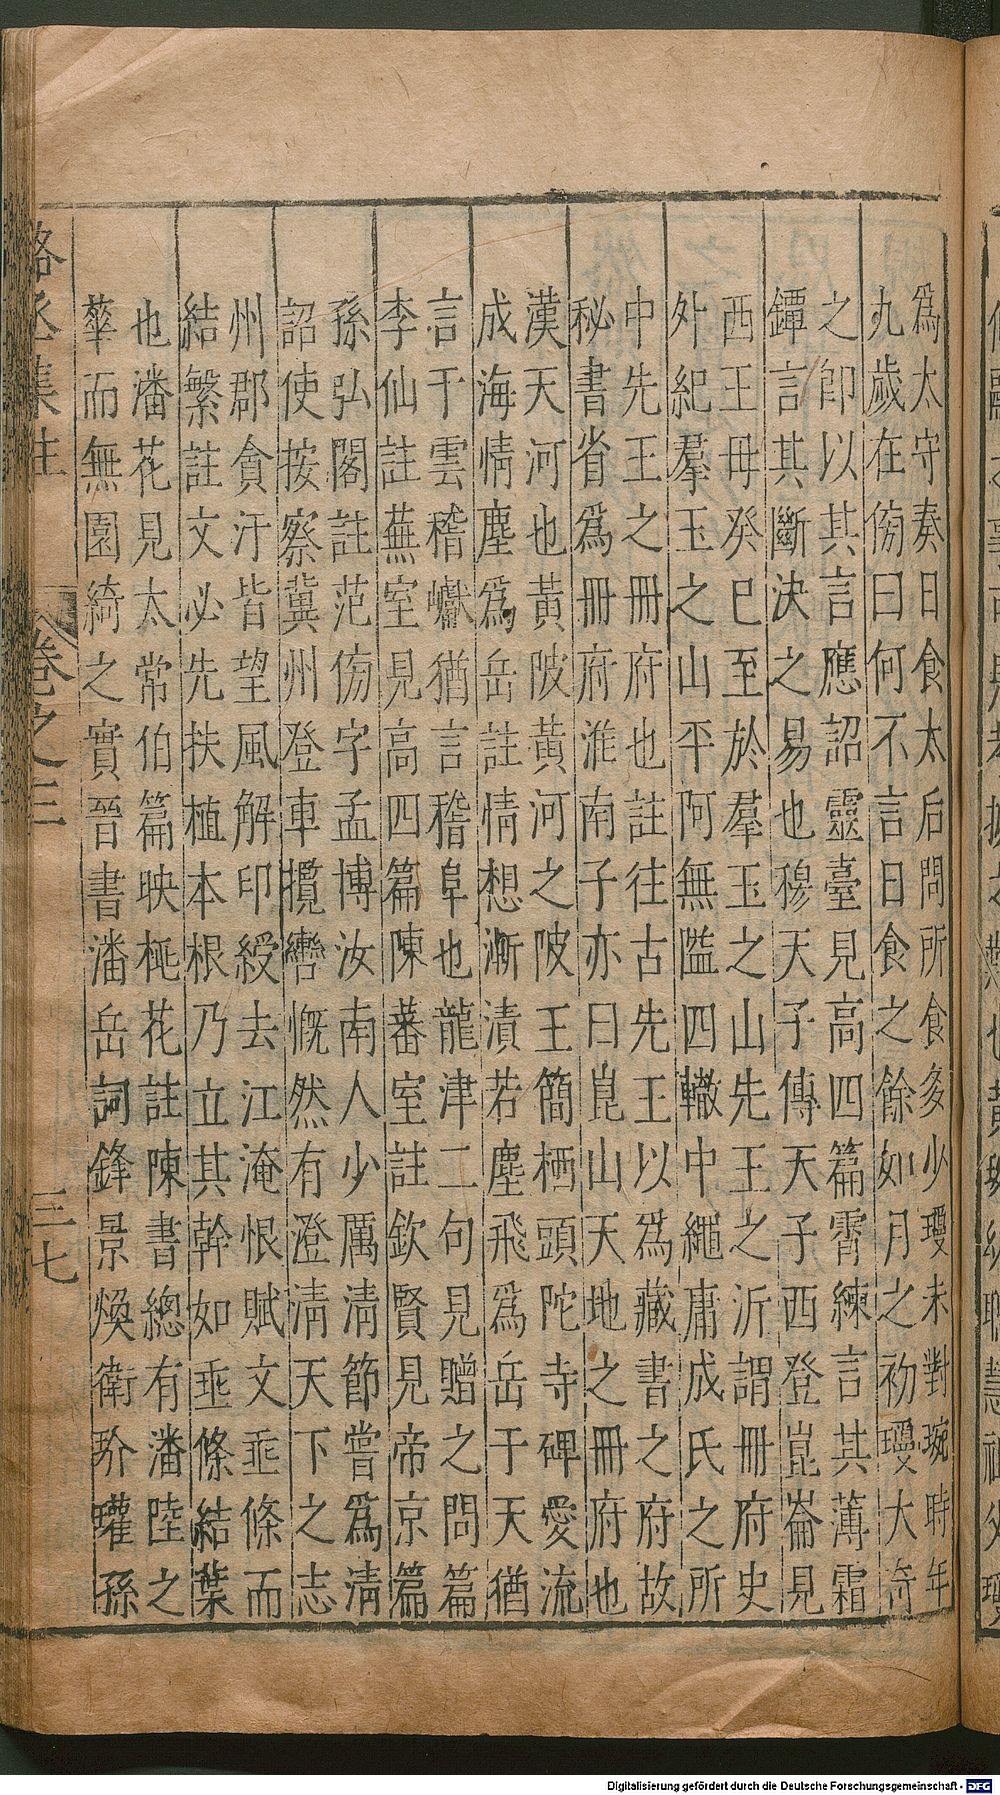 爲太守奏日食太后問所食多少瓊未對琬時年
九歲在傍曰何不言日食之餘如月之初瓊大奇
之卽以其言應詔靈臺見高四篇霄練言其薄霜
鐔言其斷決之易也穆天子傳天子西登崑崙見
西王母癸巳至於羣玉之山先王之所謂冊府史
外紀羣玉之山平阿無隘四轍中繩庸成氏之所
中先王之冊府也註往古先王以爲藏書之府故
秘書省爲冊府淮南子亦曰崑山天地之冊府也
漢天河也黃陂黃河之陂王簡栖頭陀寺碑愛流
成海情塵爲岳註情想漸漬若塵飛爲岳于天猶
言干雲稽巘猶言稽阜也龍津二句見贈之問篇
李仙註蕪室見高四篇陳蕃室註欽賢見帝京篇
孫弘閣註范傍字孟博汝南人少厲清節嘗爲清
詔使按察冀州登車攬轡慨然有澄清天下之志
州郡貪汙皆望風解印綬去江淹恨賦文垂條而
結繁註文必先扶植本根乃立其幹如垂條結葉
也潘花見太常伯篇映桃花註陳書總有潘陸之
華而無園綺之實晉書潘岳詞鋒景煥衛玠瓘孫
駱丞集註
卷之三
三七
Digitalisierung gefördert durch die Deutsche Forschungsgemeinschaft - DFG